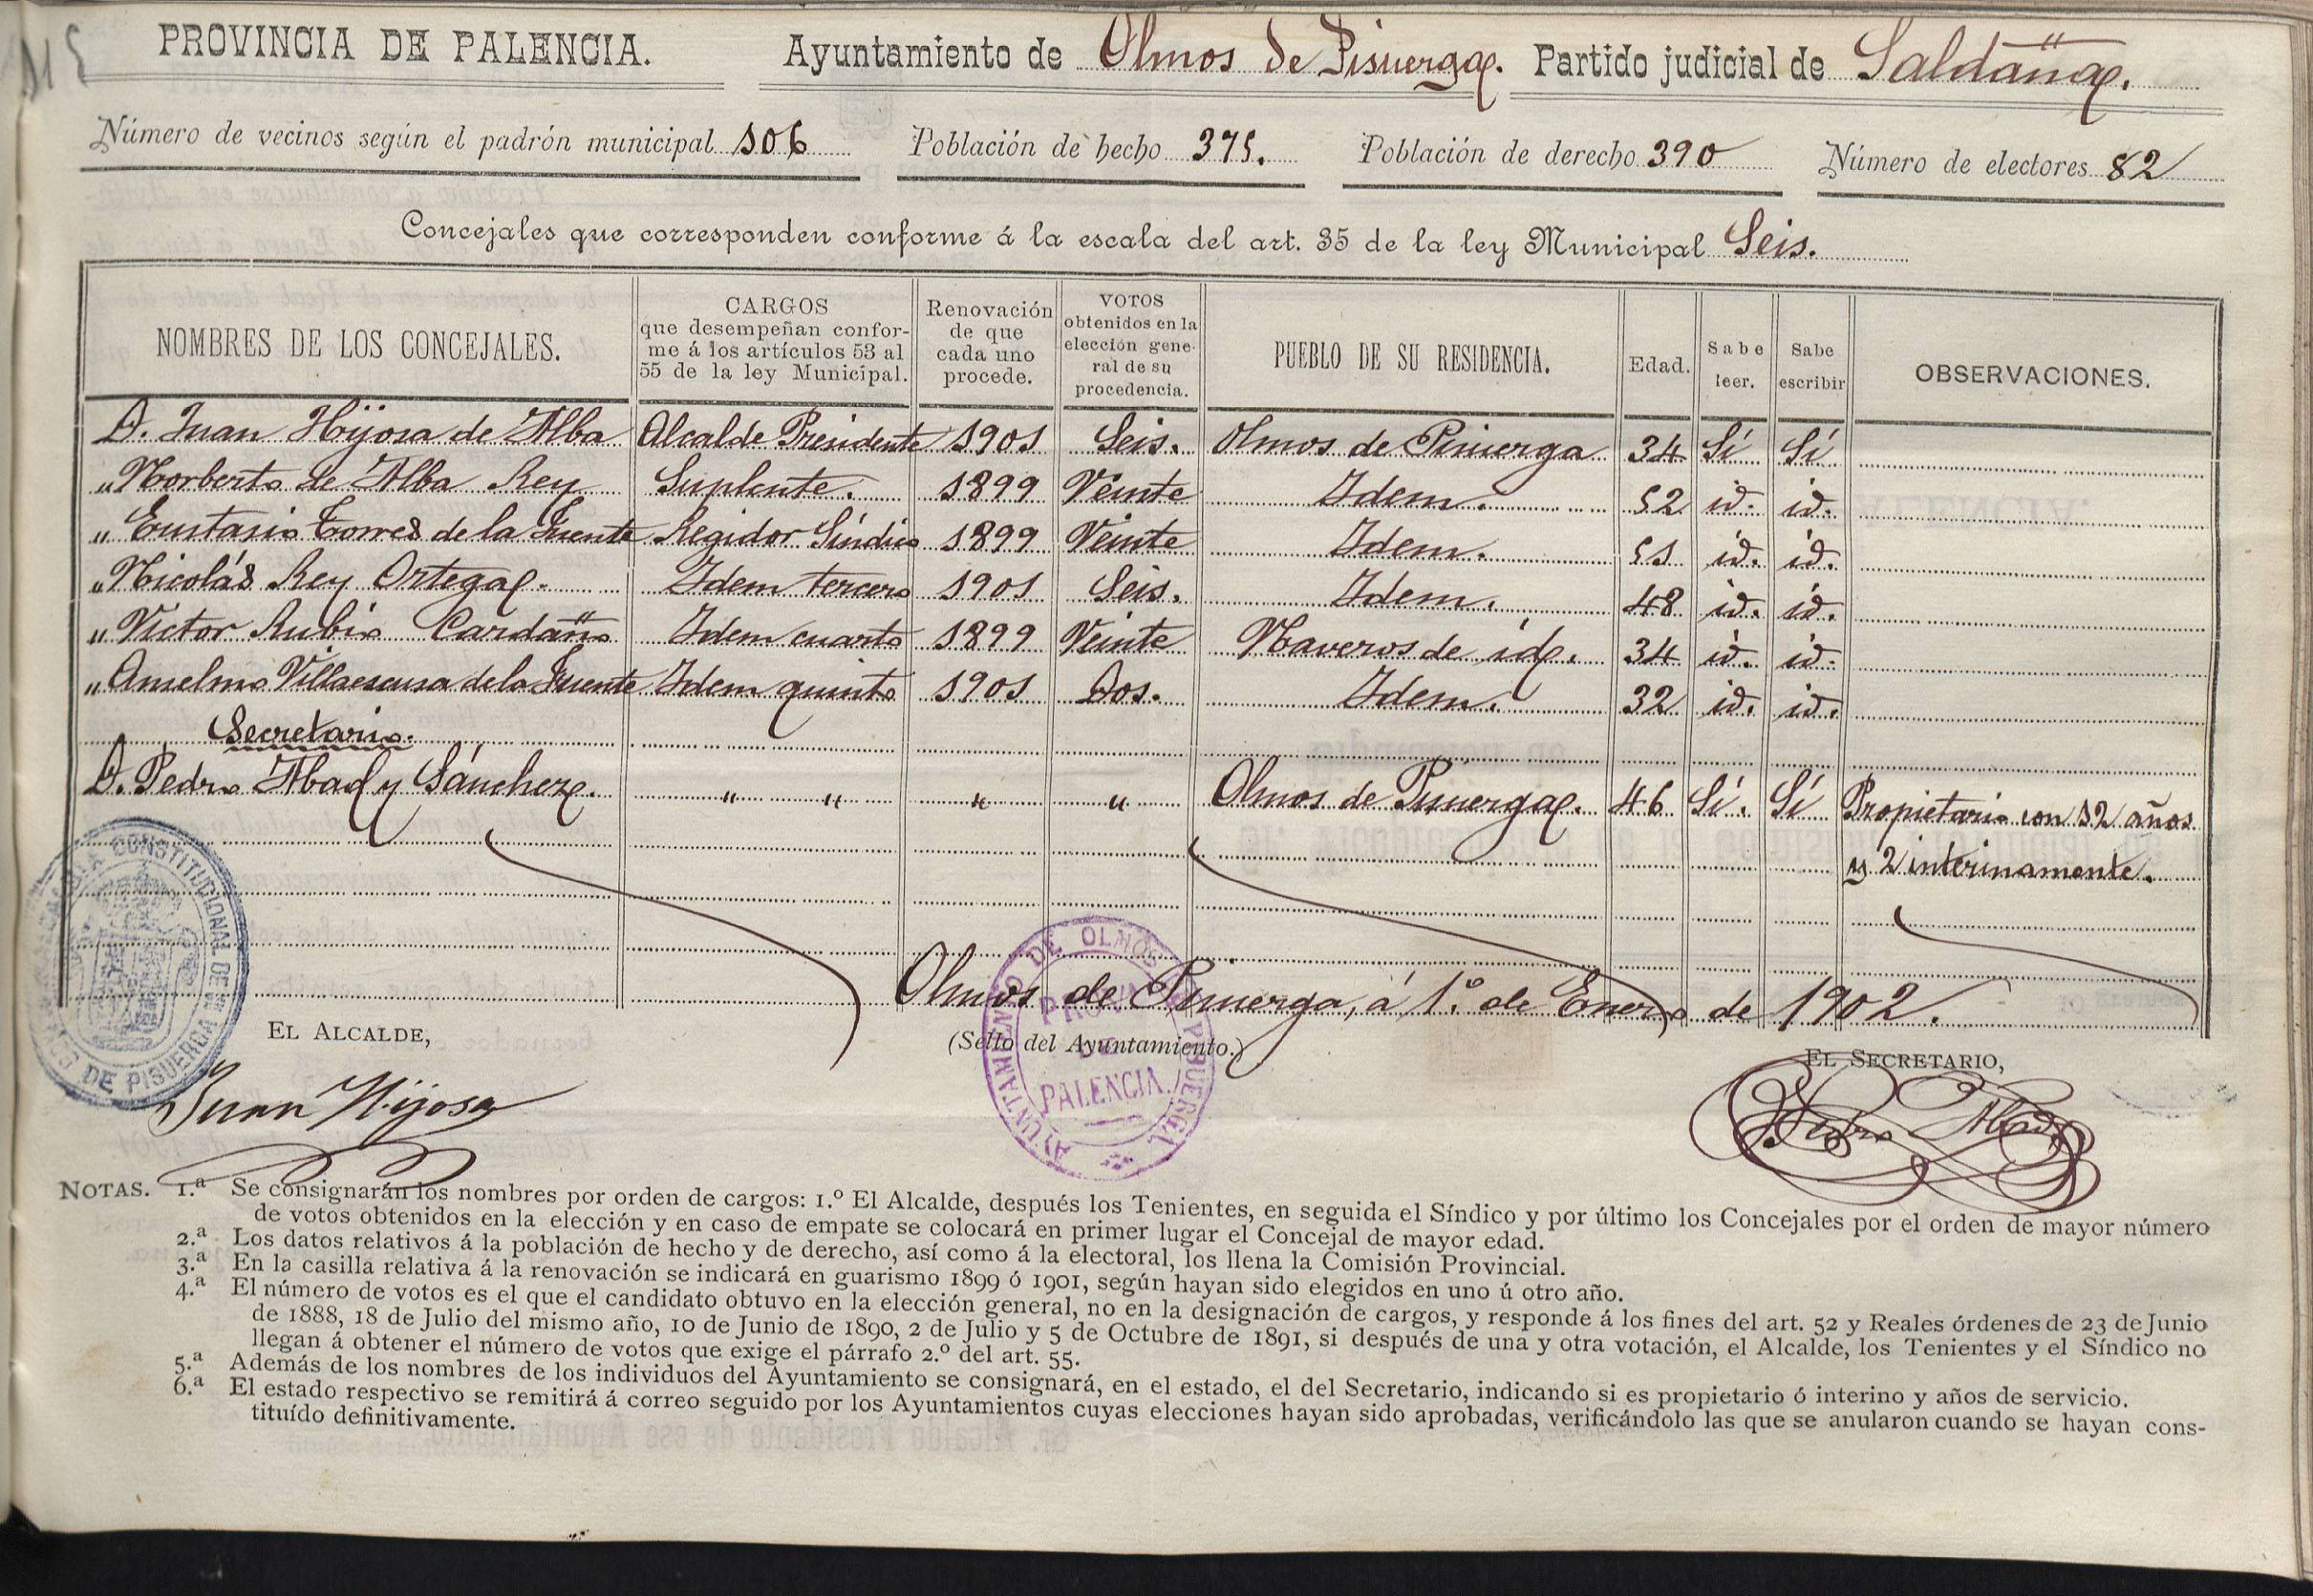 PROVINCIA DE PALENCIA. Ayuntamiento de Olmos de Pisuerga. Partido judicial de Saldaña.
Número de vecinos según el padrón municipal 106 Población de hecho 375. Población de derecho 390 Número de electores 82
Concejales que corresponden conforme á la escala del art. 35 de la ley Municipal Seis.
NOMBRES DE LOS CONCEJALES.
CARGOS
que desempeñan confor-
me á los artículos 53 al
55 de la ley Municipal.
Renovación
de que
cada uno
procede.
VOTOS
obtenidos en la
elección gene-
ral de su
procedencia.
PUEBLO DE SU RESIDENCIA.
Edad.
Sabe
leer.
Sabe
escribir
OBSERVACIONES.
D. Juan Hijosa de Alba Alcalde Presidente 1901 Seis. Olmos de Pisuerga 34 Sí Sí
„ Norberto de Alba Rey Suplente. 1899 Veinte Idem. 52 id. id.
„ Eustasio Torres de la Fuente Regidor Síndico 1899 Veinte Idem. 51 id. id.
„ Nicolás Rey Ortega. Idem tercero 1901 Seis. Idem. 48 id. id.
„ Víctor Rubio Cardaño Idem cuarto 1899 Veinte Naveros de id. 34 id. id.
„ Anselmo Villaescusa de la Fuente Idem quinto 1901 Dos. Idem. 32 id. id.
Secretario.
D. Pedro Abad y Sánchez. „ „ „ „ Olmos de Pisuerga. 46 Sí. Sí Propietario con 12 años
y 2 interinamente.
Olmos de Pisuerga, á 1.º de Enero de 1902.
EL ALCALDE,
(Sello del Ayuntamiento.)
EL SECRETARIO,
CONSTITUCIONAL DE
DE PISUERGA
AYUNTAMIENTO DE OLMOS DE PISUERGA
PROVA
DE
PALENCIA
Juan Hijosa
Pedro Abad
NOTAS. 1.ª Se consignarán los nombres por orden de cargos: 1.º El Alcalde, después los Tenientes, en seguida el Síndico y por último los Concejales por el orden de mayor número
de votos obtenidos en la elección y en caso de empate se colocará en primer lugar el Concejal de mayor edad.
2.ª Los datos relativos á la población de hecho y de derecho, así como á la electoral, los llena la Comisión Provincial.
3.ª En la casilla relativa á la renovación se indicará en guarismo 1899 ó 1901, según hayan sido elegidos en uno ú otro año.
4.ª El número de votos es el que el candidato obtuvo en la elección general, no en la designación de cargos, y responde á los fines del art. 52 y Reales órdenes de 23 de Junio
de 1888, 18 de Julio del mismo año, 10 de Junio de 1890, 2 de Julio y 5 de Octubre de 1891, si después de una y otra votación, el Alcalde, los Tenientes y el Síndico no
llegan á obtener el número de votos que exige el párrafo 2.º del art. 55.
5.ª Además de los nombres de los individuos del Ayuntamiento se consignará, en el estado, el del Secretario, indicando si es propietario ó interino y años de servicio.
6.ª El estado respectivo se remitirá á correo seguido por los Ayuntamientos cuyas elecciones hayan sido aprobadas, verificándolo las que se anularon cuando se hayan cons-
tituído definitivamente.